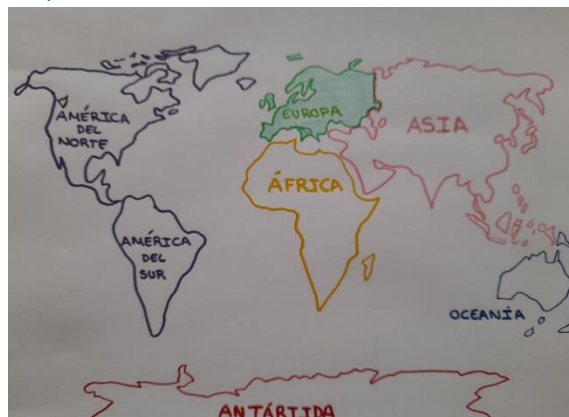 AMÉRICA
DEL
NORTE
EUROPA
ASIA
ÁFRICA
AMÉRICA
DEL
SUR
OCEANÍA
ANTÁRTIDA